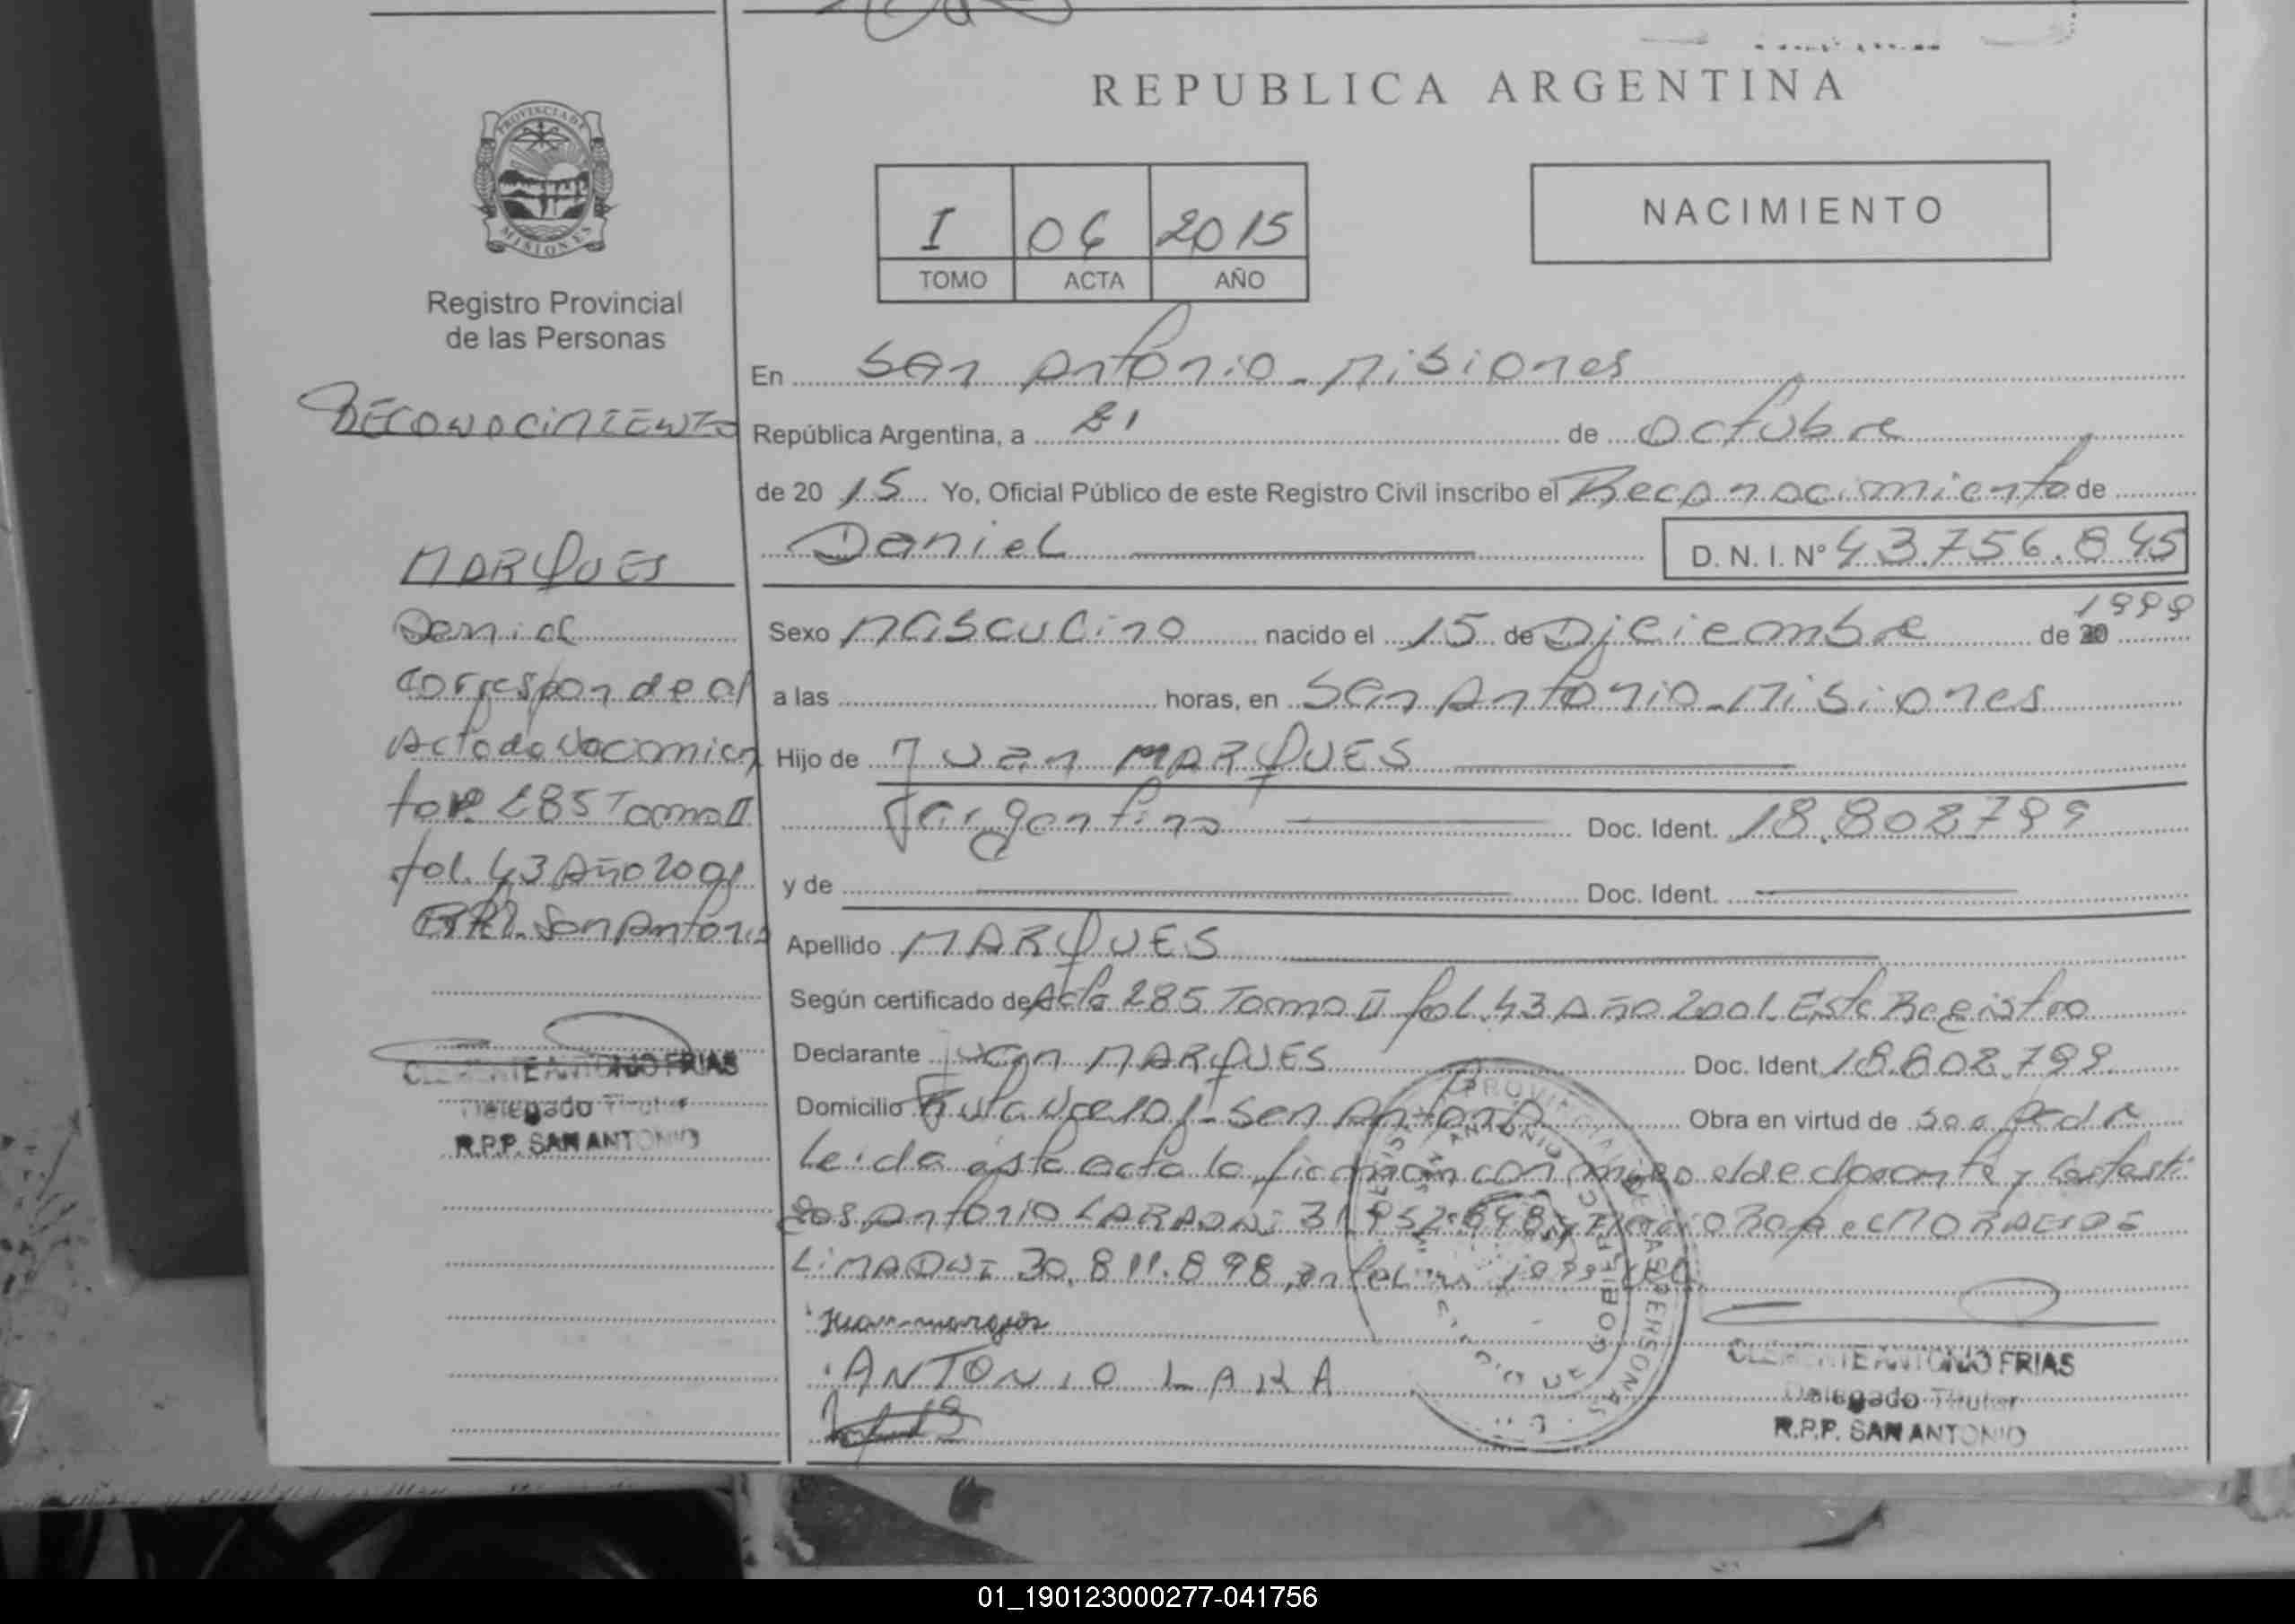 REPUBLICA ARGENTINA
PROVINCIA DE
MISIONES
Registro Provincial
de las Personas
I 06 2015
TOMO ACTA AÑO
NACIMIENTO
RECONOCIMIENTO
MARQUES
Daniel
Corresponde al
Acta de Nacimien
to Nº 285 Tomo II
fol. 43 Año 2001
San Antonio
CLEMENTE ANTONIO FRIAS
Delegado Titular
R.P.P. SAN ANTONIO
En San Antonio - Misiones
República Argentina, a 21 de octubre
de 20 15 Yo, Oficial Público de este Registro Civil inscribo el Reconocimiento de
Daniel D. N. I. Nº 43.756.845
Sexo Masculino nacido el 15 de Dieiembre de 20 1999
a las horas, en San Antonio - Misiones
Hijo de Juan MARQUES
argentino Doc. Ident. 18.802.799
y de Doc. Ident.
Apellido MARQUES
Según certificado de Acta 285 Tomo II fol. 43 Año 2001. Este Registro
Declarante Juan MARQUES Doc. Ident. 18.802.799
Domicilio San Antonio Obra en virtud de
Leida ésta acta la firman con migo el declarante y los testi
gos Antonio LARA DNI 31.952.848 y MORAES DE
LIMA DNI 30.811.898
Juan marques
ANTONIO LARA
CLEMENTE ANTONIO FRIAS
Delegado Titular
R.P.P. SAN ANTONIO
01_190123000277-041756